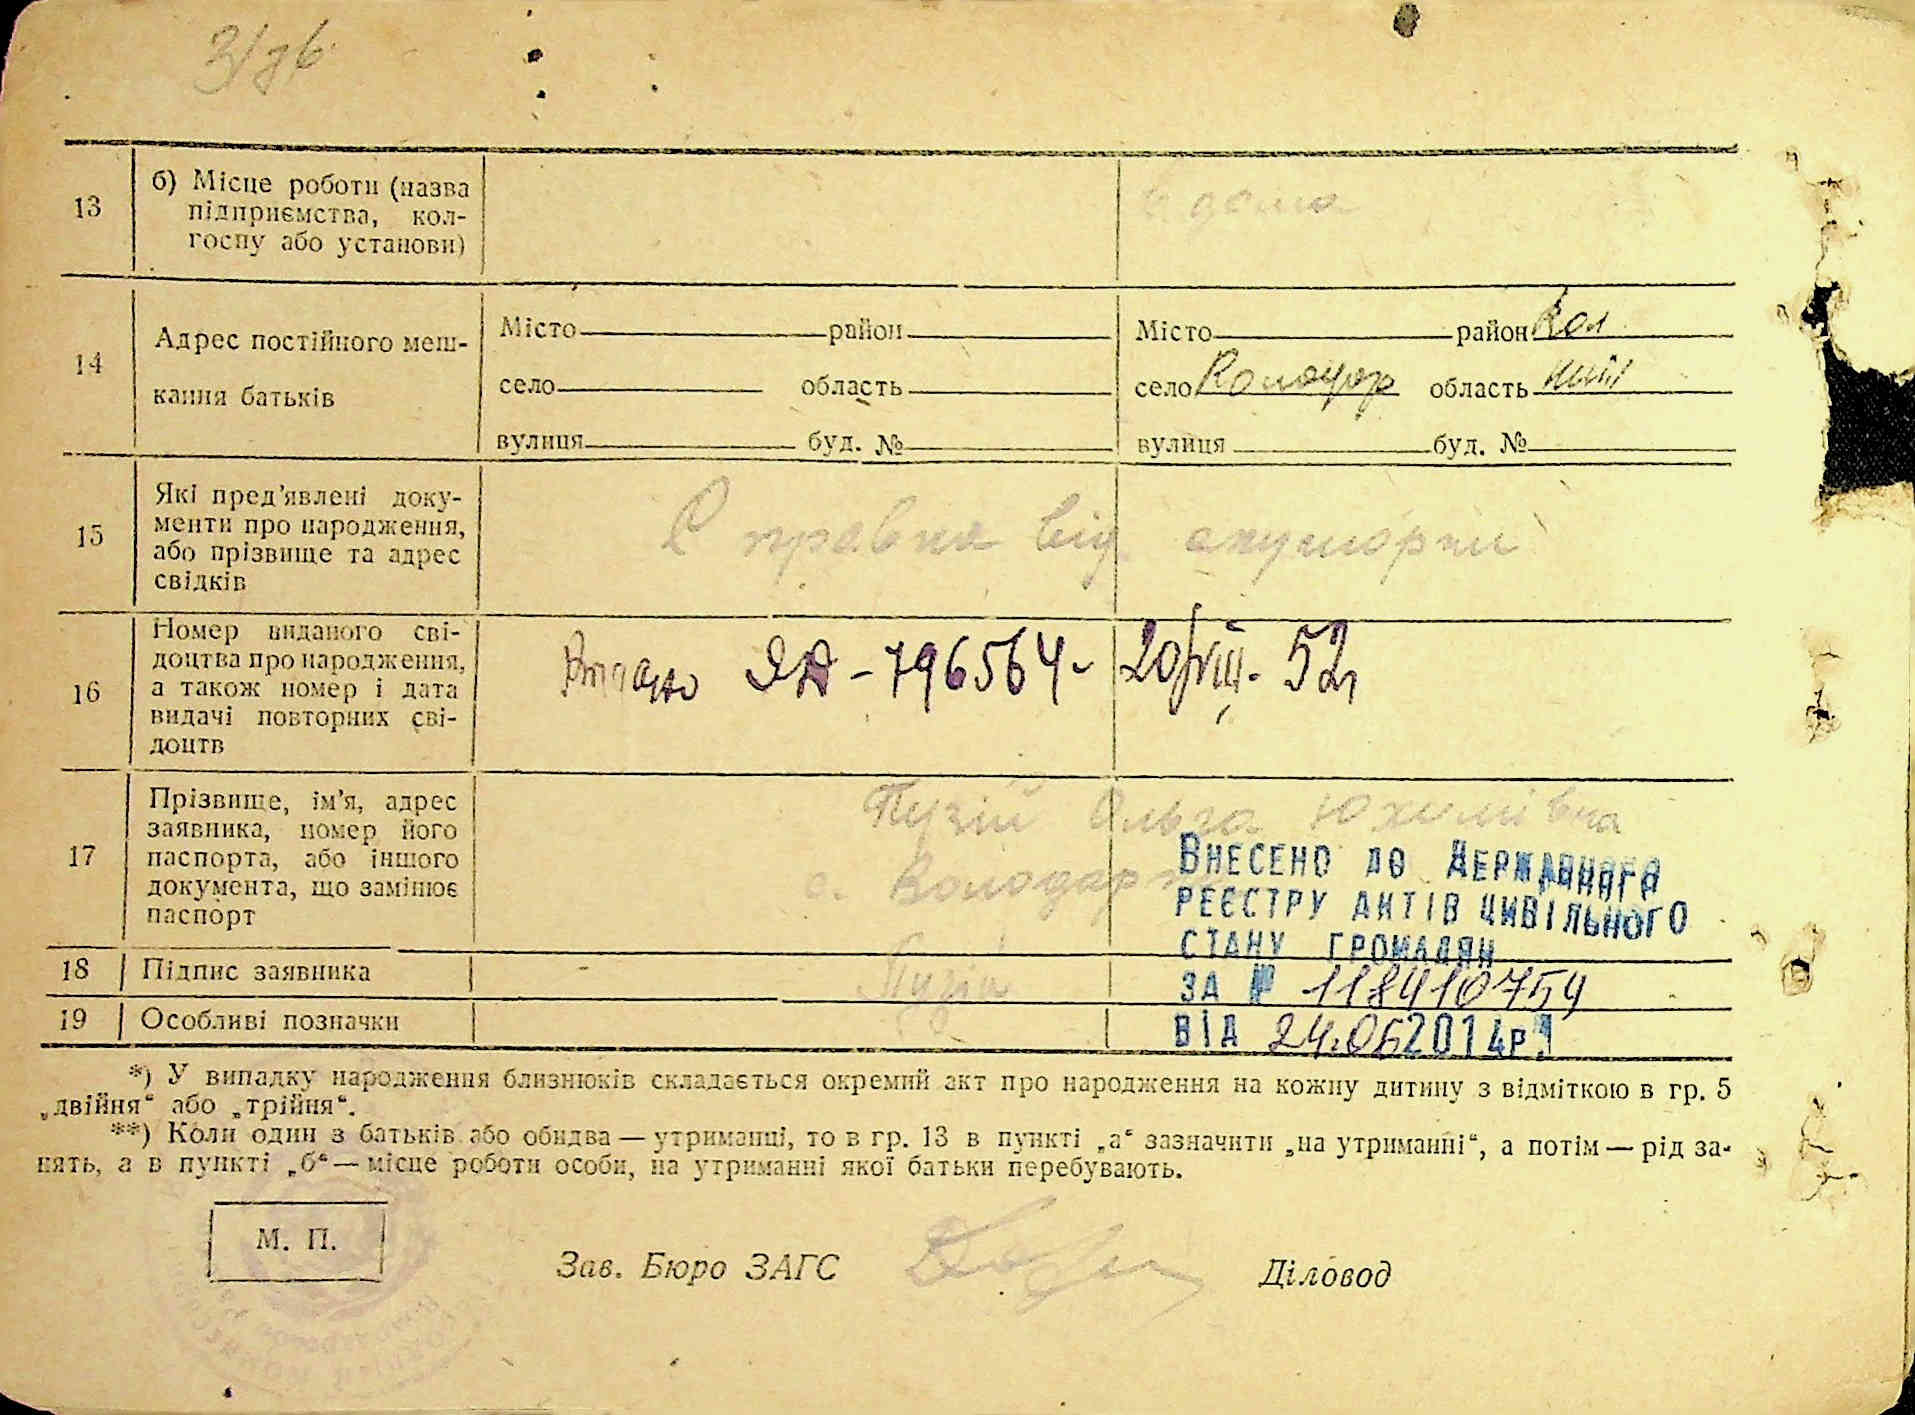 13
б) Місце роботи (назва
підприємства, кол-
госпу або установи)
дома
14
Адрес постійного меш-
кання батьків
Місто район
село область
вулиця буд. №
Місто район Вол
село Володар область Київ
вулиця буд. №
15
Які пред'явлені доку-
менти про народження,
або прізвище та адрес
свідків
Справка від акушорки
16
Номер виданого сві-
доцтва про народження,
а також номер і дата
видачі повторних сві-
доцтв
Видано ЯД-796564- 20/VIII-52р
17
Прізвище, ім'я, адрес
заявника, номер його
паспорта, або іншого
документа, що замінює
паспорт
Пузій Ольга Юхимівна
с. Володарка
ВНЕСЕНО ДО ДЕРЖАВНОГО
РЕЄСТРУ АКТІВ ЦИВІЛЬНОГО
СТАНУ ГРОМАДЯН
ЗА № 118410754
ВІД 24.06 2014р.
18 Підпис заявника
Пузій
19 Особливі позначки
*) У випадку народження близнюків складається окремий акт про народження на кожну дитину з відміткою в гр. 5
„двійня“ або „трійня“.
**) Коли один з батьків або обидва — утриманці, то в гр. 13 в пункті „а“ зазначити „на утриманні“, а потім — рід за-
нять, а в пункті „б“ — місце роботи особи, на утриманні якої батьки перебувають.
М. П.
Зав. Бюро ЗАГС
Діловод